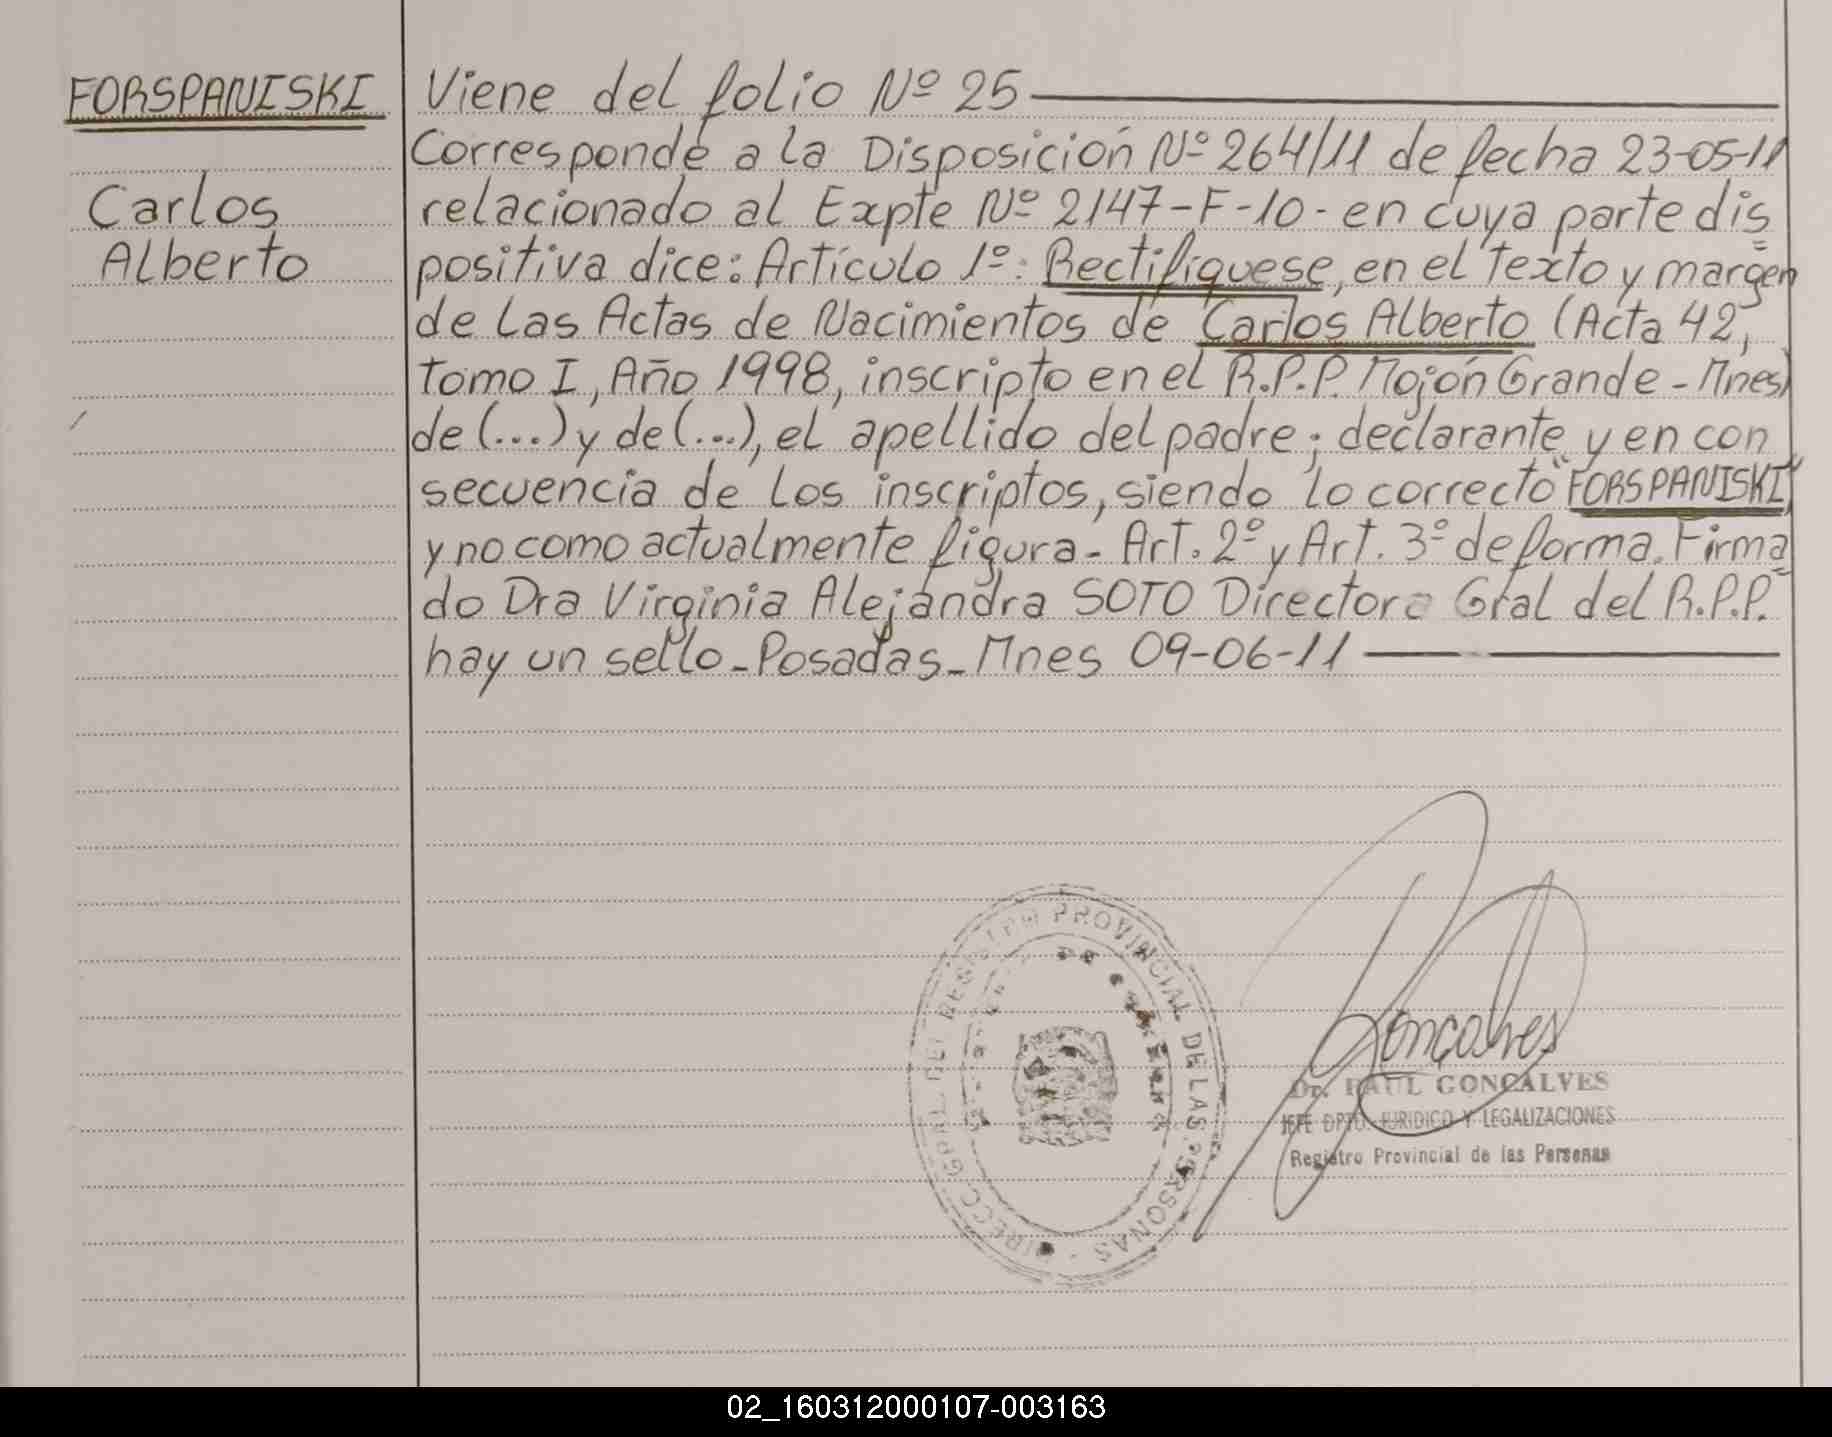 FORSPANISKI
Carlos
Alberto
Viene del folio Nº 25
Corresponde a la Disposición Nº 264/11 de fecha 23-05-11
relacionado al Expte Nº 2147-F-10- en cuya parte dis
positiva dice: Artículo 1º: Rectifíquese, en el Texto y margen
de las Actas de Nacimientos de Carlos Alberto (Acta 42,
Tomo I, Año 1998, inscripto en el R.P.P. Mojón Grande - Mnes)
de (...) y de (...), el apellido del padre; declarante y en con
secuencia de los inscriptos, siendo lo correcto "FORSPANISKI"
y no como actualmente figura- Art. 2º y Art. 3º de forma. Firma
do Dra Virginia Alejandra SOTO Directora Gral del R.P.P.
hay un sello - Posadas - Mnes 09-06-11
DIRECC. GRAL. DEL REGISTRO PROVINCIAL DE LAS PERSONAS
Goncalves
Dr. RAUL GONCALVES
JEFE DPTO. JURIDICO Y LEGALIZACIONES
Registro Provincial de las Personas
02_160312000107-003163